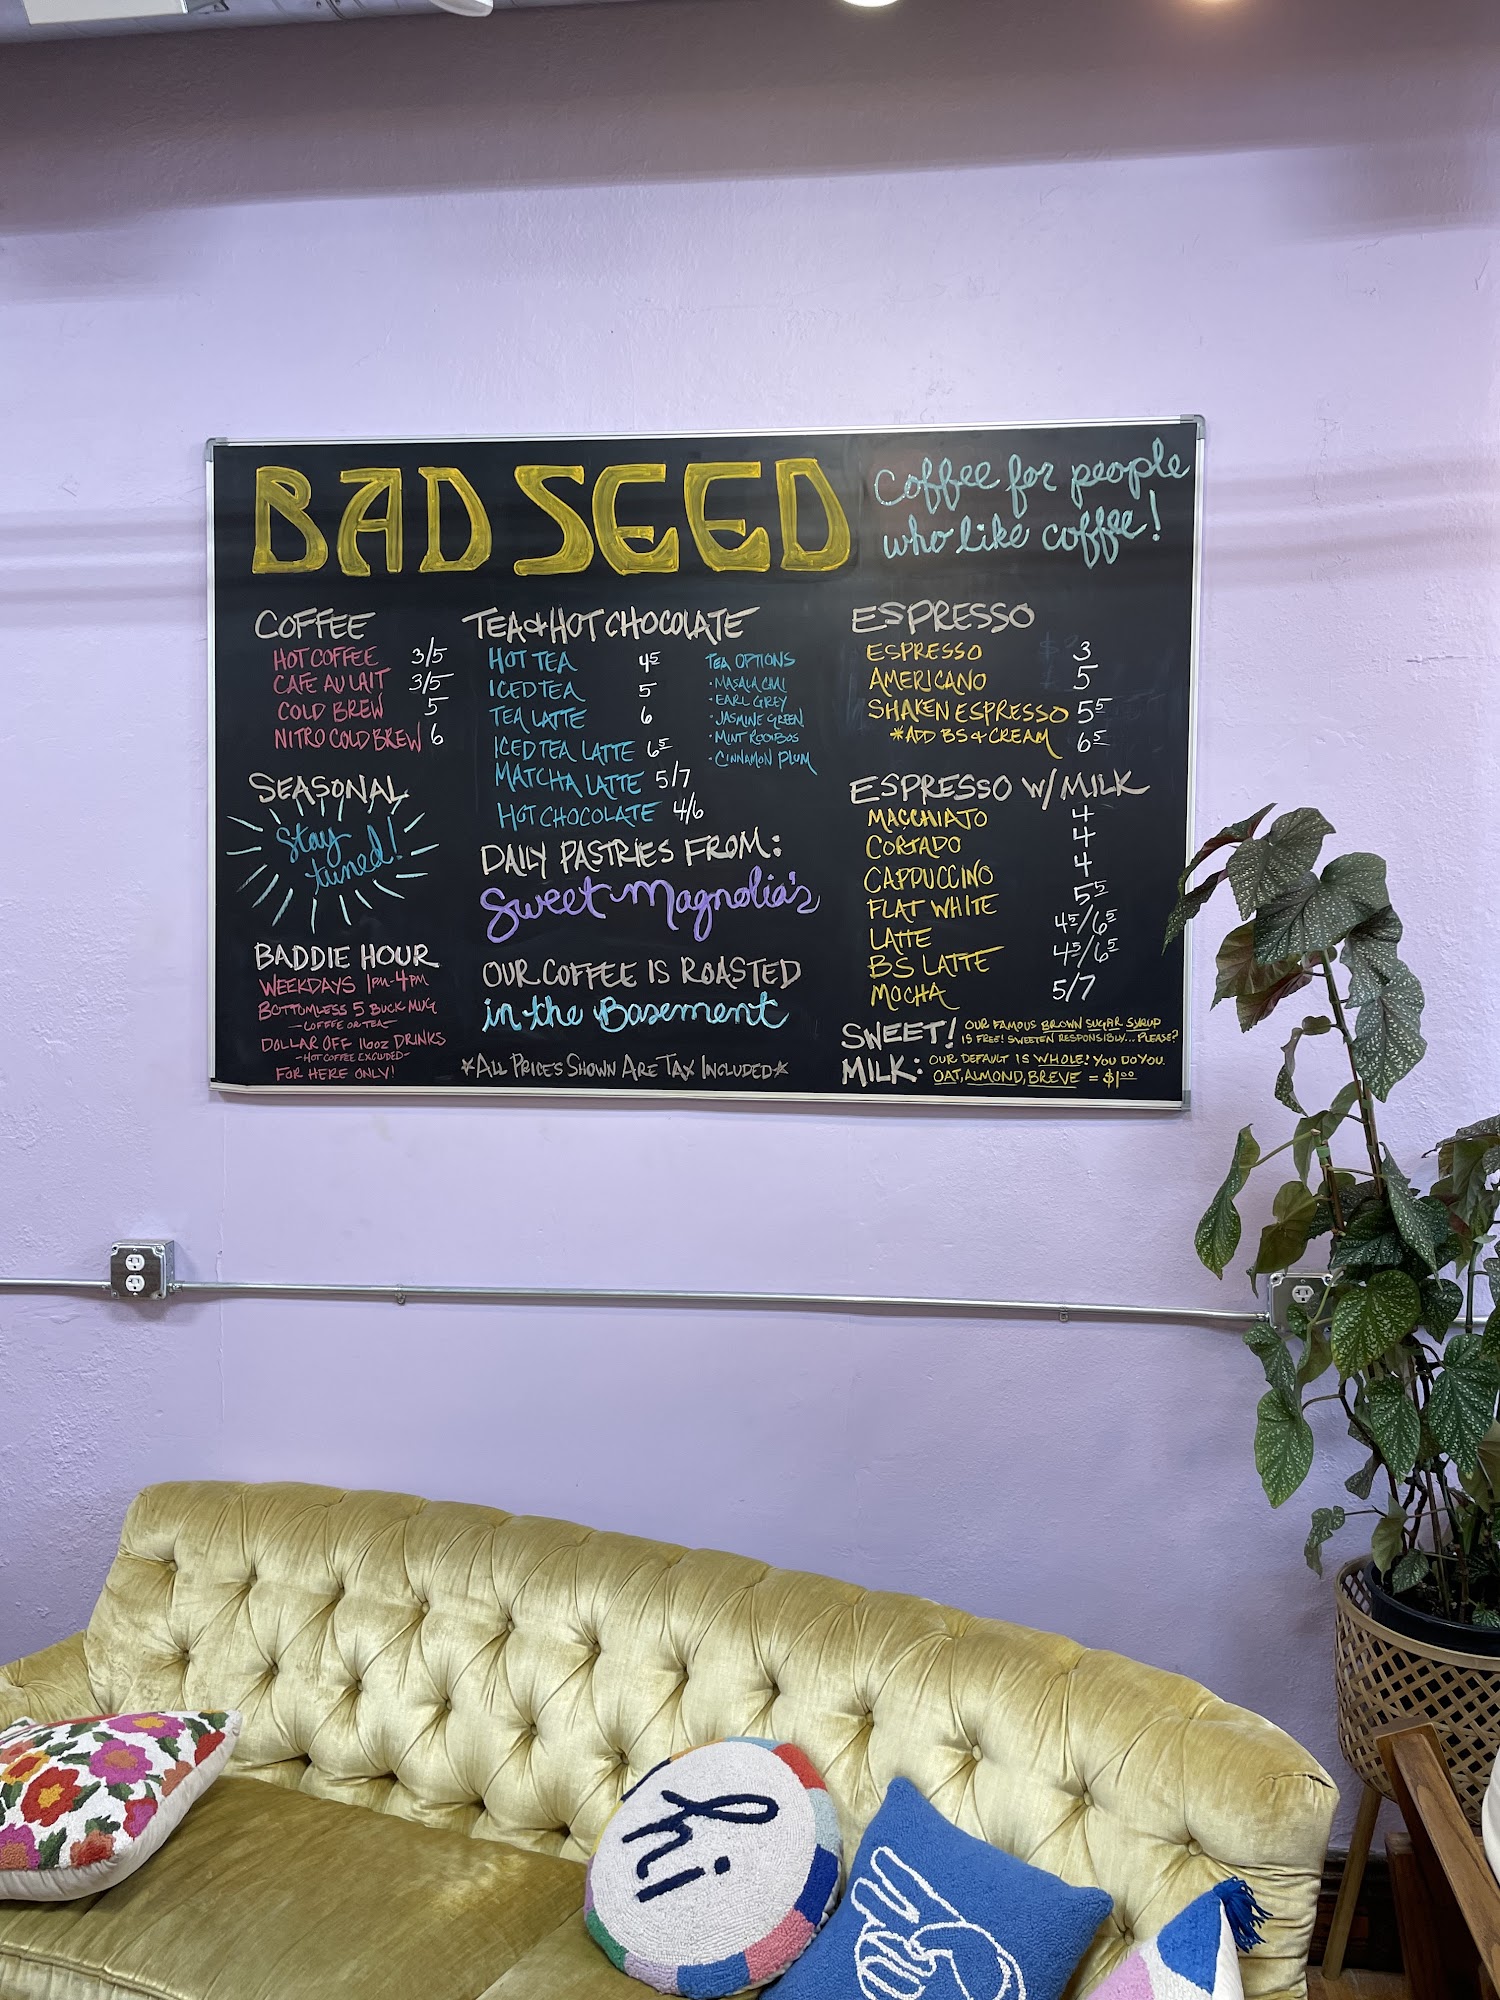 BAD SEED
Coffee for people
who like coffee!
COFFEE
HOT COFFEE 3/5
CAFE AU LAIT 3/5
COLD BREW 5
NITRO COLD BREW 6
SEASONAL
Stay
tuned!
BADDIE HOUR
WEEKDAYS 1PM-4PM
BOTTOMLESS 5 BUCK MUG
-COFFEE OR TEA-
DOLLAR OFF 16oz DRINKS
-HOT COFFEE EXCLUDED-
FOR HERE ONLY!
TEA & HOT CHOCOLATE
HOT TEA 4⁵
ICED TEA 5
TEA LATTE 6
ICED TEA LATTE 6⁵
MATCHA LATTE 5/7
HOT CHOCOLATE 4/6
TEA OPTIONS
• MASALA CHAI
• EARL GREY
• JASMINE GREEN
• MINT ROOIBOS
• CINNAMON PLUM
DAILY PASTRIES FROM:
Sweet Magnolia's
OUR COFFEE IS ROASTED
in the Basement
*ALL PRICES SHOWN ARE TAX INCLUDED*
ESPRESSO
ESPRESSO 3
AMERICANO 5
SHAKEN ESPRESSO 5⁵
*ADD BS & CREAM 6⁵
ESPRESSO W/ MILK
MACCHIATO 4
CORTADO 4
CAPPUCCINO 4
FLAT WHITE 5⁵
LATTE 4⁵/6⁵
BS LATTE 4⁵/6⁵
MOCHA 5/7
SWEET! OUR FAMOUS BROWN SUGAR SYRUP
IS FREE! SWEETEN RESPONSIBLY... PLEASE?
MILK: OUR DEFAULT IS WHOLE! YOU DO YOU.
OAT, ALMOND, BREVE = $1⁰⁰
hi